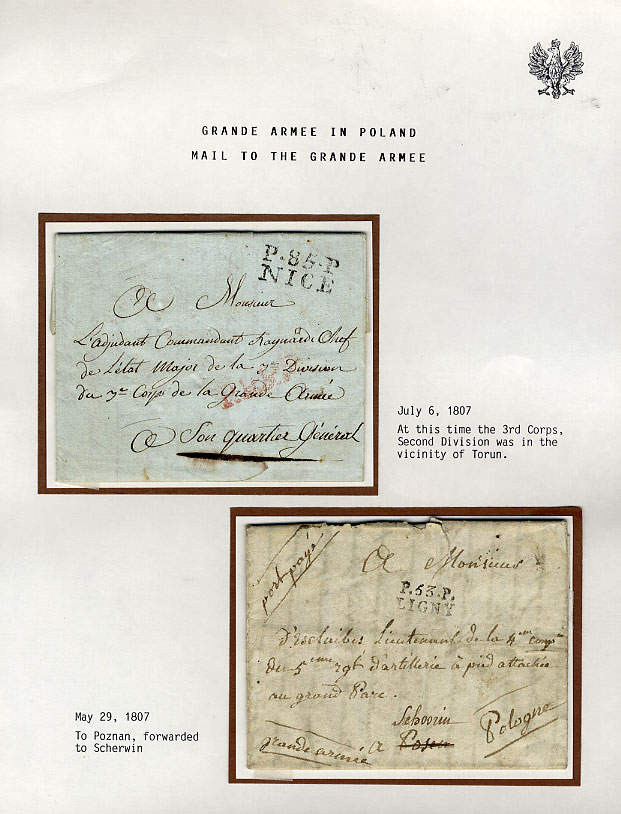 GRANDE ARMEE IN POLAND
MAIL TO THE GRANDE ARMEE
P.85.P
NICE
A Monsieur
L'adjudant Commandant Raynardi Chef
de L'état Major de la 2me Division
du 3me Corps de la Grande Armée
A Son quartier Général
July 6, 1807
At this time the 3rd Corps,
Second Division was in the
vicinity of Torun.
port payé
A Monsieur
P.53.P.
LIGNY
D'Esclaibes Lieutenant de la 4eme Compie
du 5eme rgt d'artillerie à pied attachée
au grand Parc.
Schoorin
grande armée a Posen Pologne
May 29, 1807
To Poznan, forwarded
to Scherwin